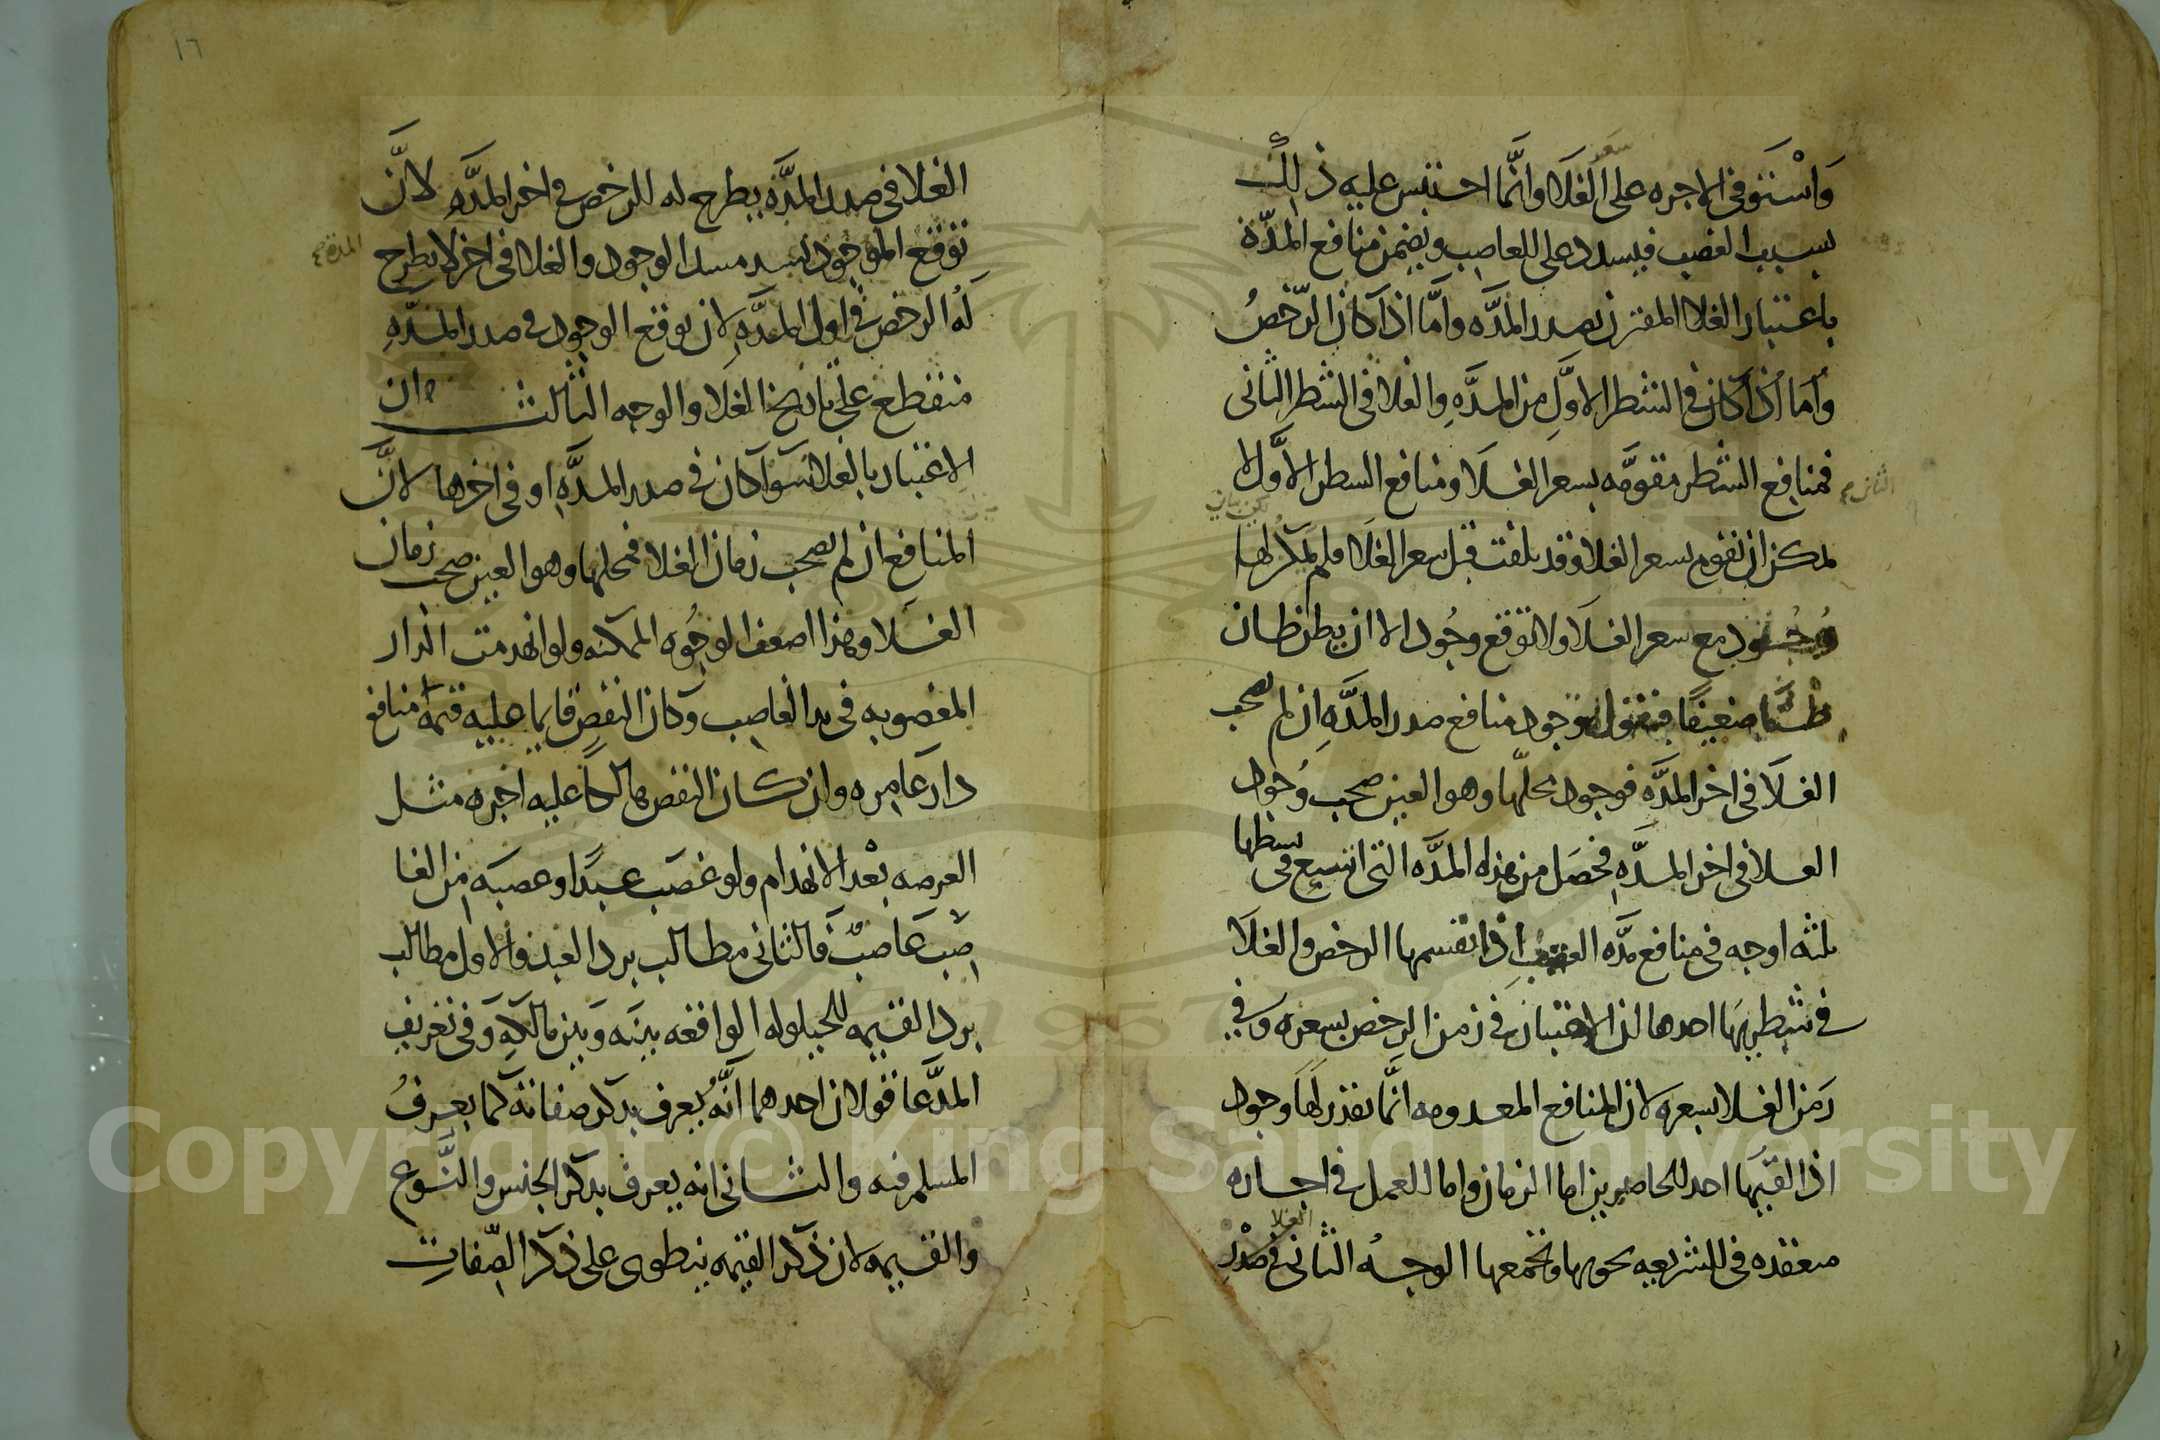 واستوفى الاجره على سعر الغلا وانما احتبس عليه ذلك
بسبب الغصب فيسدد على الغاصب ويضمن منافع المدة
باعتبار الغلا المقترن بصدر المده واما اذا كان الرخص
واما اذا كان في الشطر الاول من المده والغلا في الشطر الثاني
فمنافع الشطر الثاني مقومه بسعر الغلا ومنافع الشطر الاول لا
يمكن ان تقوم بسعر الغلا وقد تلفت قبل سعر الغلا فلم يكن لها
وجود مع سعر الغلا ولا توقع وجود الا ان يظن ظان
ظنا ضعيفا فيقول وجود منافع صدر المده ان لم يصحب
الغلا في اخر المده فوجود محلها وهو العين صحب وجود
الغلا في اخر المده فحصل من هذه المده التي اتسع في
ثلثه اوجه في منافع مده الغصب اذا تقسمها الرخص والغلا
في شطريها احدها ان الاعتبار في زمن الرخص بسعره وفي
زمن الغلا بسعره لان المنافع المعدومه انما يقدر لها وجود
اذا لقيها احد الحاصرين اما الزمان واما العمل في اجاره
منعقده في الشريعه تحويها وتجمعها الوجه الثاني ان الغلا في صدر
١٦
الغلا في صدر المده يطرح له الرخص في اخر المده لان
توقع الموجود يسد مسد الوجود والغلا في اخر المدة لا يطرح
له الرخص في اول المده لان توقع الوجود في صدر المده
منقطع على تاريخ الغلا والوجه الثالث ان
الاعتبار بالغلا سوا كان في صدر المده او في اخرها لان
المنافع ان لم تصحب زمان الغلا فمحلها وهو العين صحب زمان
الغلا وهذا اضعف الوجوه الممكنه ولو انهدمت الدار
المغصوبه في يد الغاصب وكان النقض قايما عليه قيمة منافع
دار عامره وان كان النقض هالكا عليه اجره مثل
العرصه بعد الانهدام ولو غصب عبدا وغصبه من الغا
صب غاصب فالثاني مطالب برد العبد والاول مطالب
برد القيمه للحيلوله الواقعه بينه وبين مالكه وفي تعريف
المدعا قولان احدهما انه يعرف بذكر صفاته كما يعرف
المسلم فيه والثاني انه يعرف بذكر الجنس والنوع
والقيمه لان ذكر القيمه ينطوى على ذكر الصفات
Copyright © King Saud University
1957